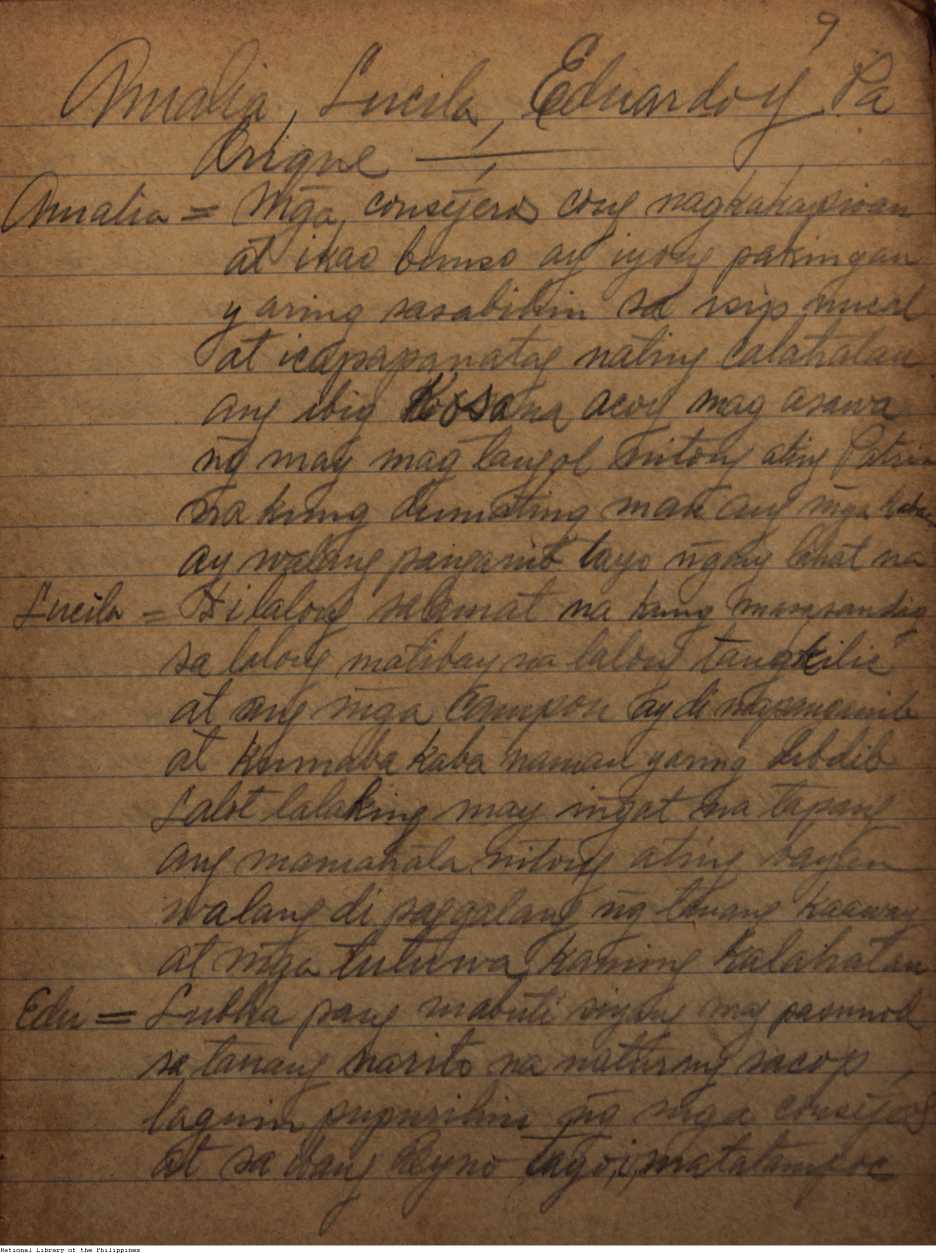 9
Amalia, Lucila, Eduardo y Pa
Enrique
Amalia = Mga consejeros cong nagkakapisan
at ikao bunso ay iyong pakingan
yaring sasabihin sa isip mucal
at icapapanatag nating calahatan
ang ibig Ko sana acoy mag asawa
ng may mag tangol nitong ating Patria
na kung dumating man ang mga
ay walang panganib tayo ngang lahat na
Lucila = Di lalong salamat na kung masasandig
sa lalong matibay na lalong tangkilic
at ang mga campon ay di mapanganib
at kumaba kaba naman yaring dibdib
Sabt lalaking may ingat na tapang
ang mamahala nitong ating bayan
walang di paggalang ng tanang kaaway
at mga tutuwa kaming kalahatan
Edu = Lubha pang mabuti niyang may pasunod
sa tanang narito na naturng sacop
laguin pupurihin ng mga consejeros
at sa ibang Reyno tayo,i, matatampoc
National Library of the Philippines